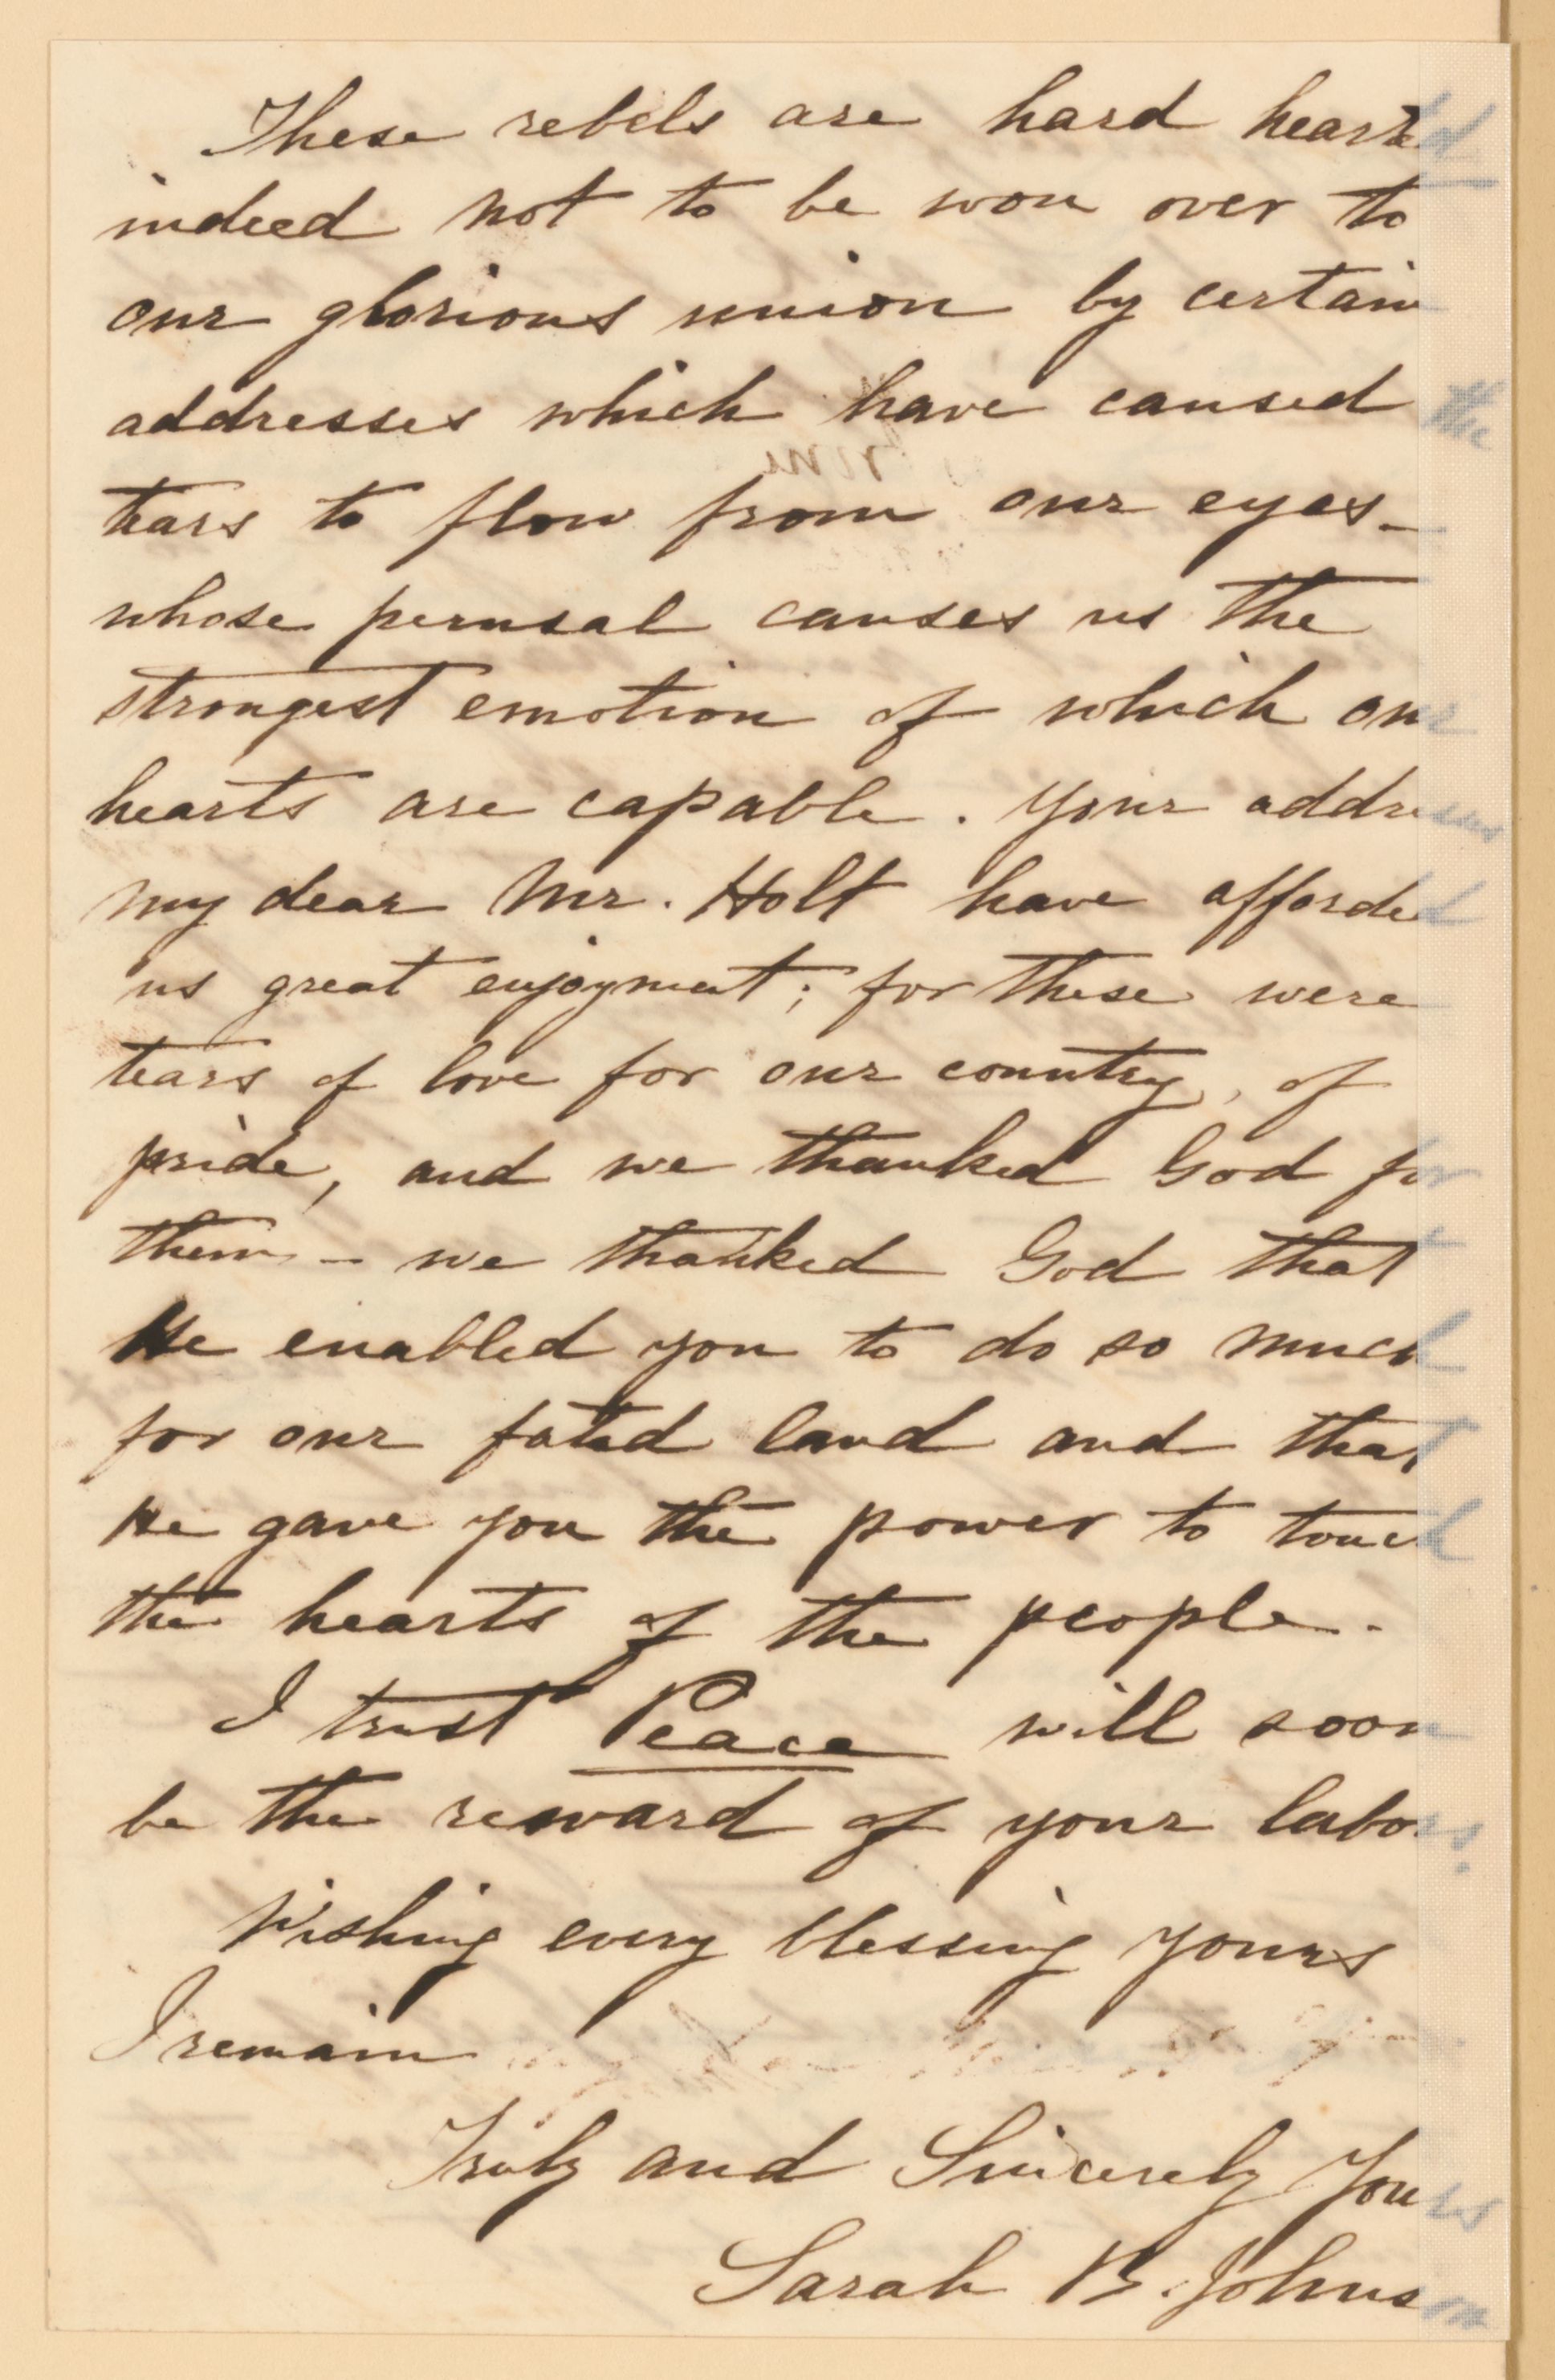 These rebels are hard hearted
indeed not to be won over to
our glorious union by certain
addresses which have caused the
tears to flow from our eyes-
whose perusal causes us the
strongest emotion of which our
hearts are capable. Your addresses
my dear Mr. Holt have afforded
us great enjoyment; for these were
tears of love for our country, of
pride, and we thanked God for
them - we thanked God that
He enabled you to do so much
for our fated land and that
He gave you the power to touch
the hearts of the people.
I trust Peace will soon
be the reward of your labors.
Wishing every blessing yours
I remain
Truly and Sincerely Yours
Sarah B. Johnson